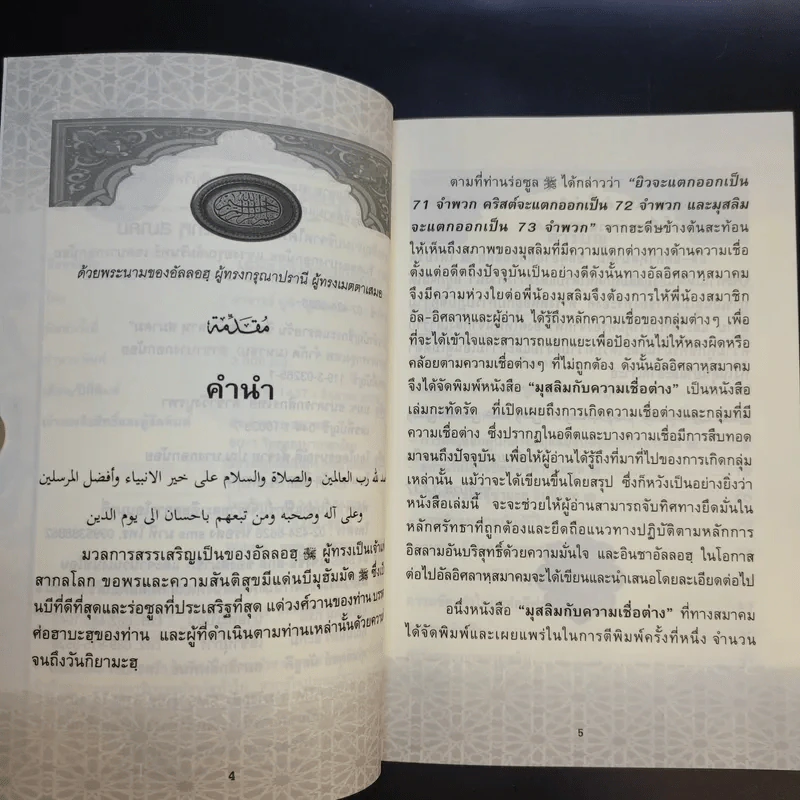 ด้วยพระนามของอัลลอฮฺ ผู้ทรงกรุณาปรานี ผู้ทรงเมตตาเสมอ
مُقَدِّمَة
คำนำ
لله رب العالمين والصلاة والسلام على خير الانبياء وأفضل المرسلين
وعلى آله وصحبه ومن تبعهم باحسان الى يوم الدين
มวลการสรรเสริญเป็นของอัลลอฮฺ ﷻ ผู้ทรงเป็นเจ้าแห่ง
สากลโลก ขอพรและความสันติสุขมีแด่นบีมุฮัมมัด ﷺ ซึ่งเป็น
นบีที่ดีที่สุดและร่อซูลที่ประเสริฐที่สุด แด่วงศ์วานของท่าน
ศ่อฮาบะฮฺของท่าน และผู้ที่ดำเนินตามท่านเหล่านั้นด้วย
จนถึงวันกิยามะฮฺ
4
ตามที่ท่านร่อซูล ﷺ ได้กล่าวว่า “ยิวจะแตกออกเป็น
71 จำพวก คริสต์จะแตกออกเป็น 72 จำพวก และมุสลิม
จะแตกออกเป็น 73 จำพวก” จากฮะดีษข้างต้นสะท้อน
ให้เห็นถึงสภาพของมุสลิมที่มีความแตกต่างทางด้านความเชื่อ
ตั้งแต่อดีตถึงปัจจุบันเป็นอย่างดีดังนั้นทางอัลอิศลาหฺสมาคม
จึงมีความห่วงใยต่อพี่น้องมุสลิมจึงต้องการให้พี่น้องสมาชิก
อัล-อิศลาหฺและผู้อ่าน ได้รู้ถึงหลักความเชื่อของกลุ่มต่างๆ เพื่อ
ที่จะได้เข้าใจและสามารถแยกแยะเพื่อป้องกันไม่ให้หลงผิดหรือ
คล้อยตามความเชื่อต่างๆ ที่ไม่ถูกต้อง ดังนั้นอัลอิศลาหฺสมาคม
จึงได้จัดพิมพ์หนังสือ “มุสลิมกับความเชื่อต่าง” เป็นหนังสือ
เล่มกะทัดรัด ที่เปิดเผยถึงการเกิดความเชื่อต่างและกลุ่มที่มี
ความเชื่อต่าง ซึ่งปรากฏในอดีตและบางความเชื่อมีการสืบทอด
มาจนถึงปัจจุบัน เพื่อให้ผู้อ่านได้รู้ถึงที่มาที่ไปของการเกิดกลุ่ม
เหล่านั้น แม้ว่าจะได้เขียนขึ้นโดยสรุป ซึ่งก็หวังเป็นอย่างยิ่งว่า
หนังสือเล่มนี้ จะจะช่วยให้ผู้อ่านสามารถจับทิศทางยึดมั่นใน
หลักศรัทธาที่ถูกต้องและยึดถือแนวทางปฏิบัติตามหลักการ
อิสลามอันบริสุทธิ์ด้วยความมั่นใจ และอินชาอัลลอฮฺ ในโอกาส
ต่อไปอัลอิศลาหฺสมาคมจะได้เขียนและนำเสนอโดยละเอียดต่อไป
อนึ่งหนังสือ “มุสลิมกับความเชื่อต่าง” ที่ทางสมาคม
ได้จัดพิมพ์และเผยแพร่ในในการตีพิมพ์ครั้งที่หนึ่ง จำนวน
5